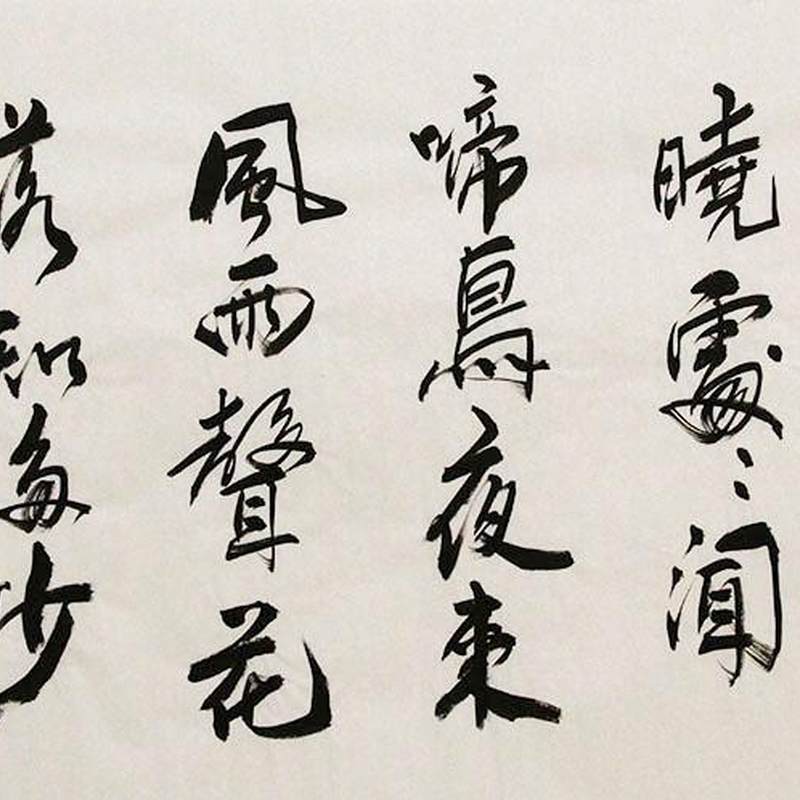 曉處〻聞
啼鳥夜來
風雨聲花
落知多少